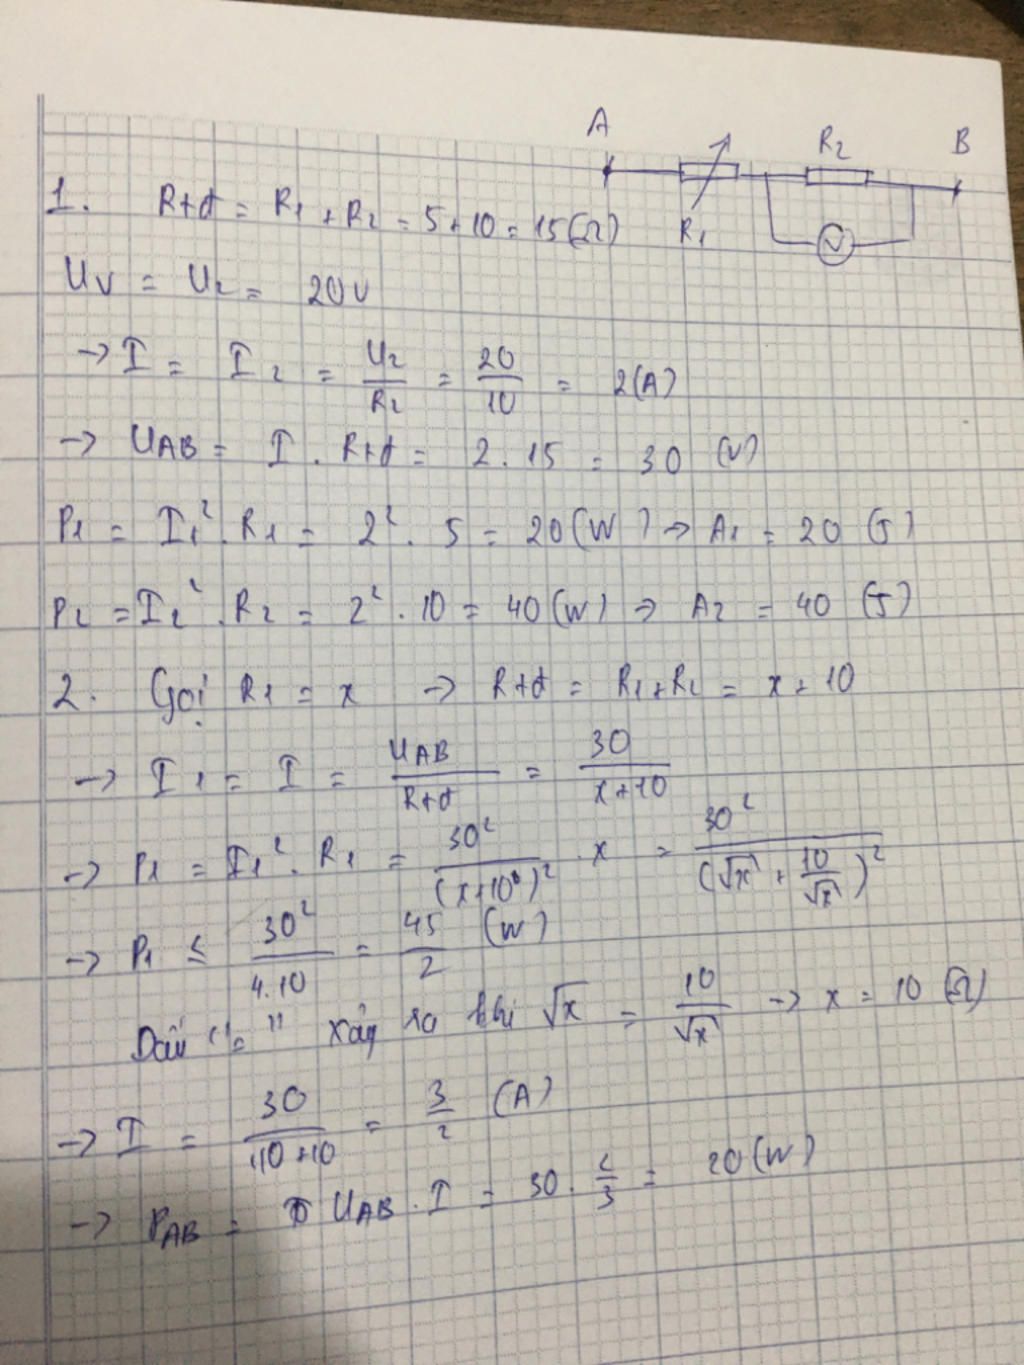 A
R2
B
R1
V
1. Rtđ = R1 + R2 = 5 + 10 = 15(Ω)
UV = U2 = 20V
→ I = I2 = U2/R2 = 20/10 = 2(A)
→ UAB = I . Rtđ = 2 . 15 = 30 (V)
P1 = I1² . R1 = 2² . 5 = 20(W) → A1 = 20 (J)
P2 = I2² . R2 = 2² . 10 = 40(W) → A2 = 40 (J)
2. Gọi R1 = x → Rtđ = R1 + R2 = x + 10
→ I1 = I = UAB/Rtđ = 30/(x+10)
→ P1 = I1² . R1 = 30²/(x+10)² . x = 30²/(√x + 10/√x)²
→ P1 ≤ 30²/4.10 = 45/2 (W)
Dấu "=" xảy ra khi √x = 10/√x → x = 10 (Ω)
→ I = 30/(10+10) = 3/2 (A)
→ PAB = UAB . I = 30 . 2/3 = 20(W)